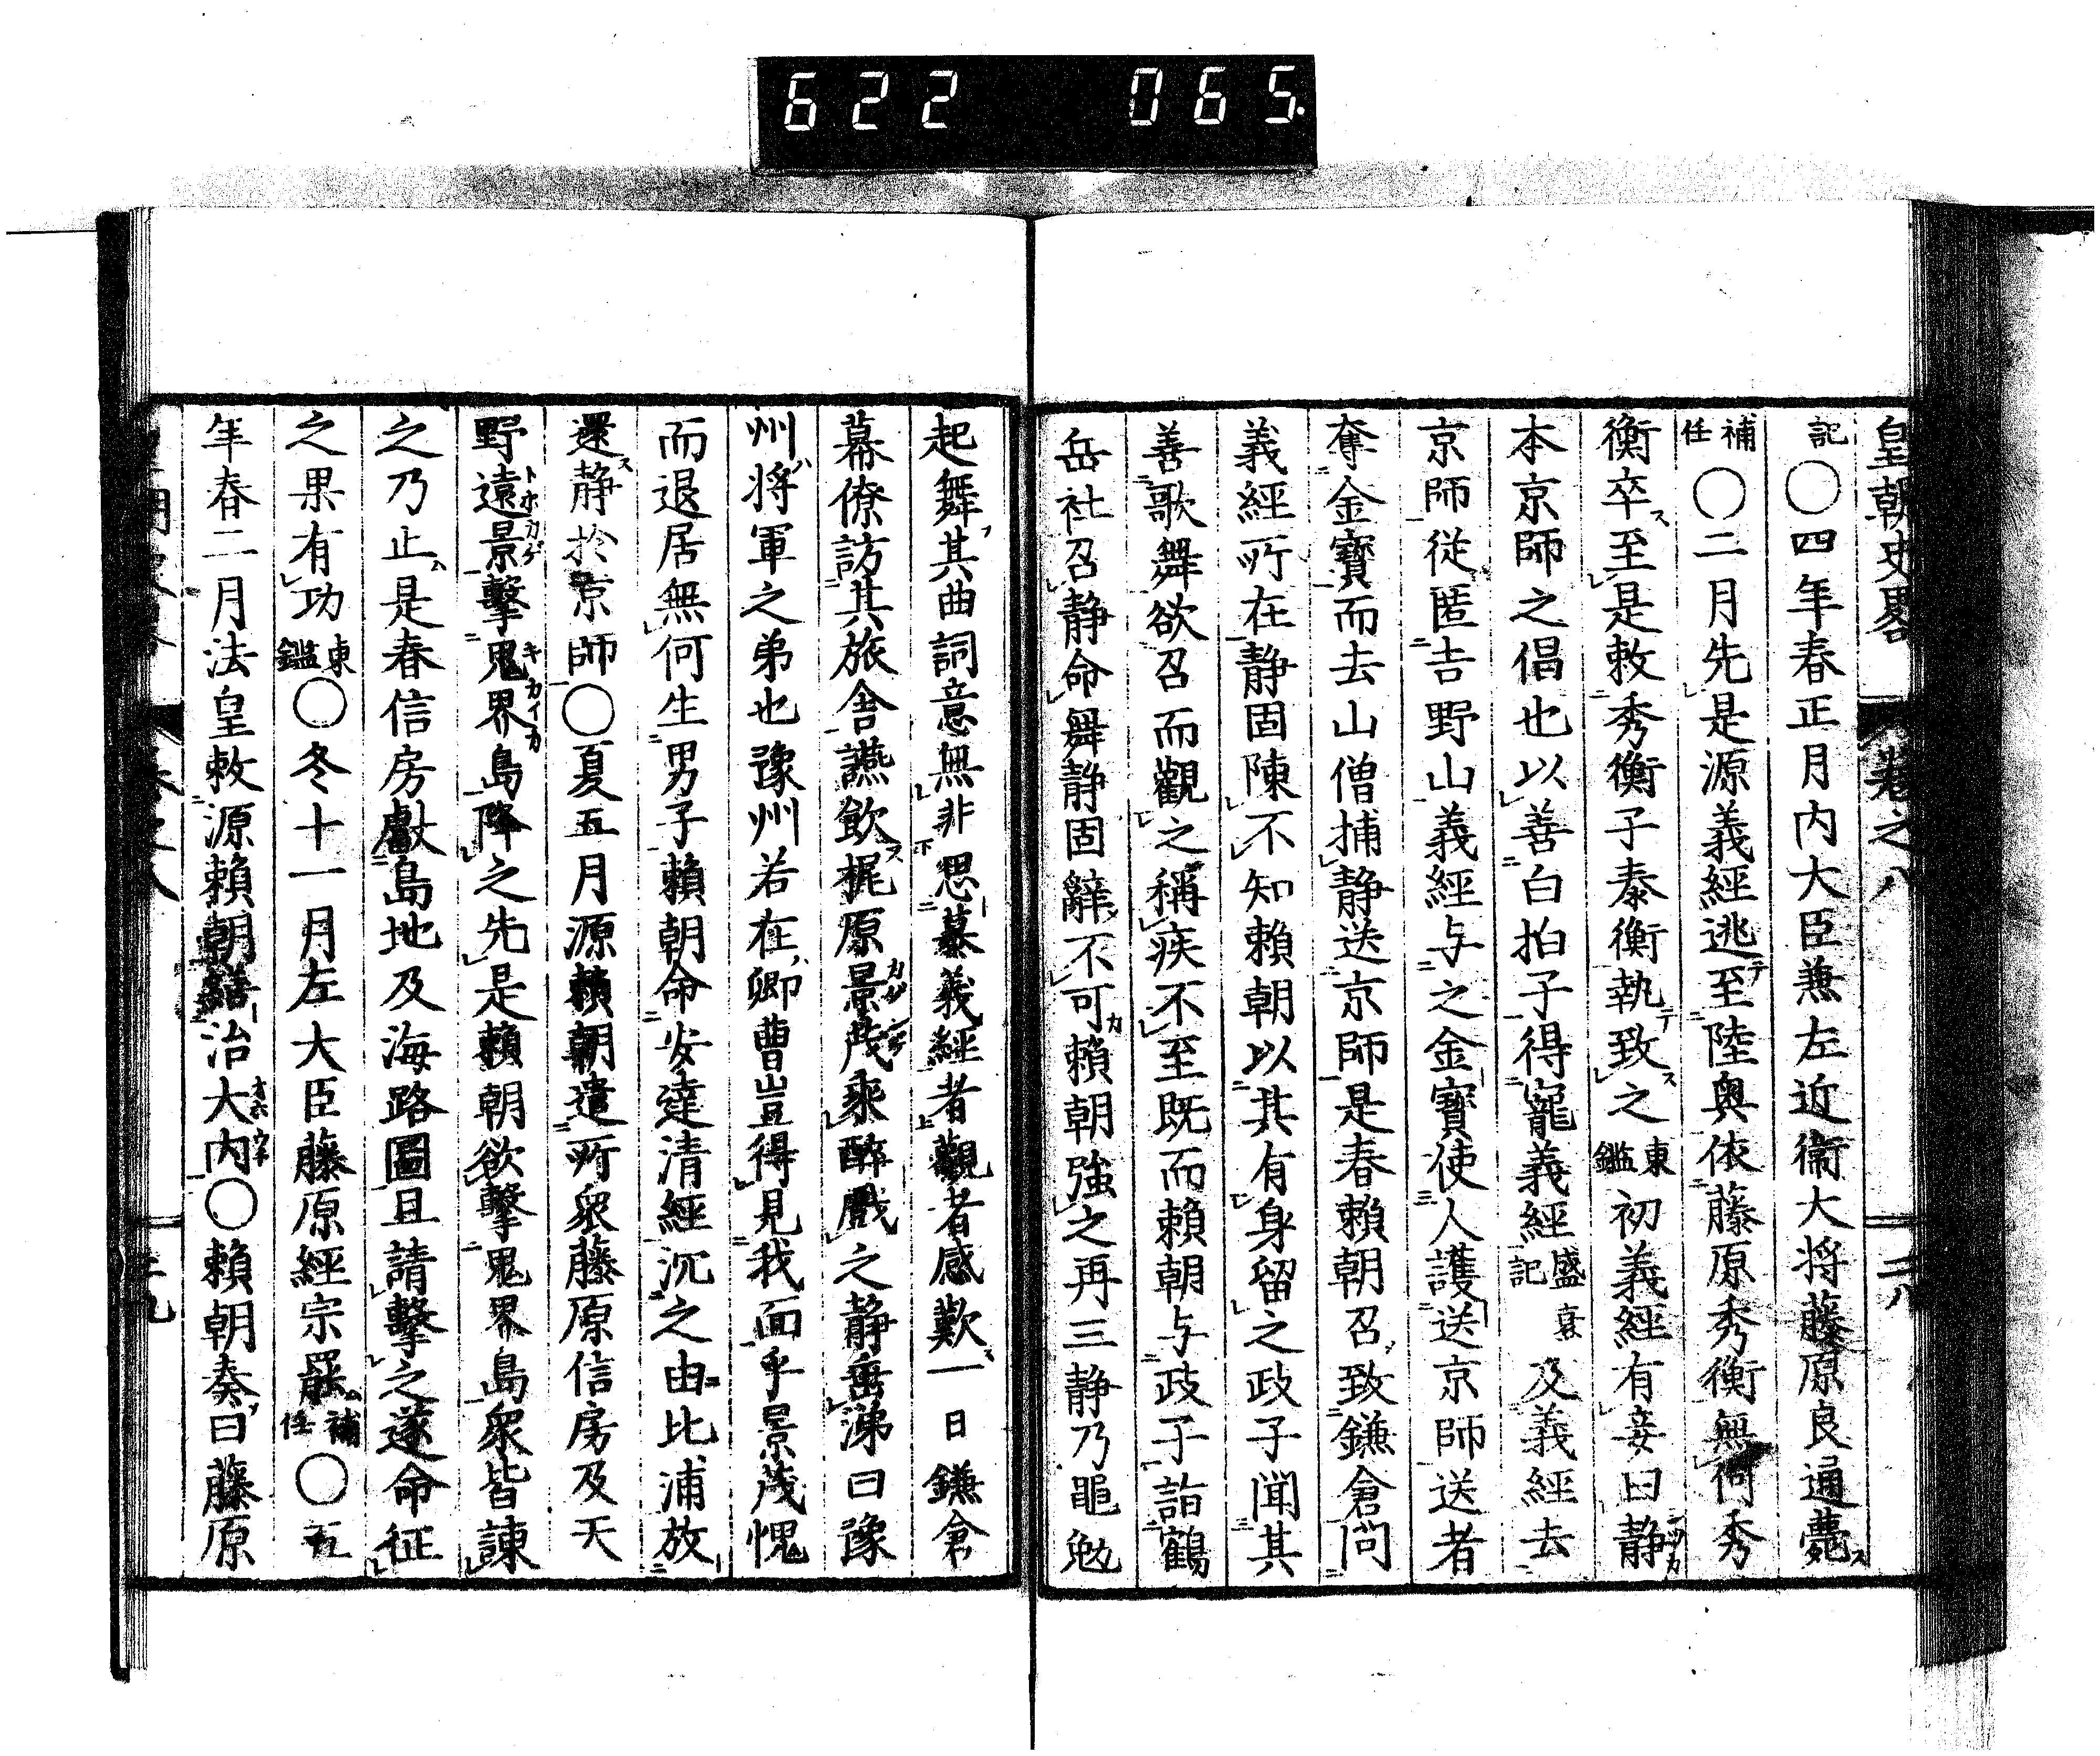 622 065
皇朝史畧 卷之八 二八
記〇四年春正月内大臣兼左近衞大将藤原良通薨
補任〇二月先是源義經逃至陸奥依藤原秀衡無何秀
衡卒至是敕秀衡子泰衡執致之東鑑初義經有妾曰靜
本京師之倡也以善白拍子得寵義經盛衰記及義經去
京師従匿吉野山義經与之金寶使人護送京師送者
奪金寶而去山僧捕靜送京師是春賴朝召致鎌倉問
義經所在靜固陳不知賴朝以其有身留之政子聞其
善歌舞欲召而觀之稱疾不至既而賴朝与政子詣鶴
岳社召靜命舞靜固辭不可賴朝強之再三靜乃黽勉
起舞其曲詞意無非思慕義經者觀者感歎一日鎌倉
幕僚訪其旅舎讌飲梶原景茂乘醉戲之靜垂涕曰豫
州将軍之弟也豫州若在卿曹豈得見我面乎景茂愧
而退居無何生男子賴朝命安達清經沉之由比浦放
還靜於京師〇夏五月源賴朝遣所衆藤原信房及天
野遠景擊鬼界島降之先是賴朝欲擊鬼界島衆皆諫
之乃止是春信房獻島地及海路圖且請擊之遂命征
之果有功東鑑〇冬十一月左大臣藤原經宗罷補任〇五
年春二月法皇敕源賴朝繕治大内〇賴朝奏曰藤原